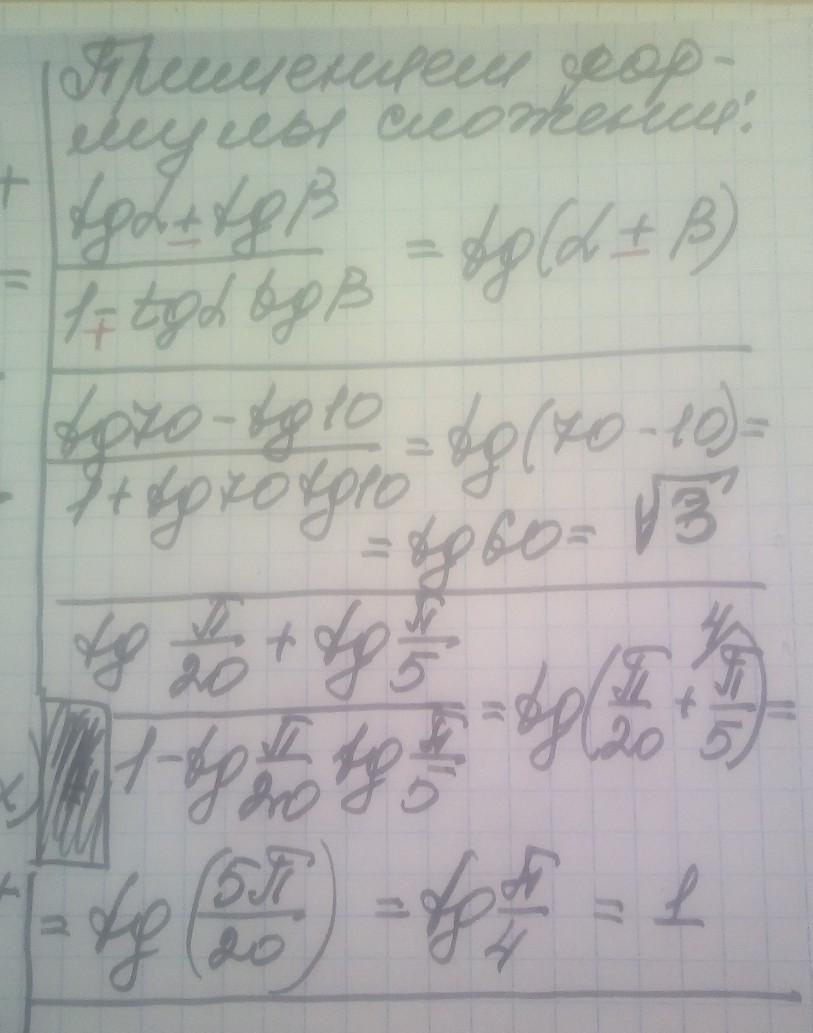 Применяем фор-
мулы сложения:
tgα ± tgβ
= tg(α ± β)
1 ∓ tgα tgβ
tg70 - tg10
= tg(70 - 10) =
1 + tg70 tg10
= tg60 = √3
tg π/20 + tg π/5
= tg(π/20 + π/5) =
4
1 - tg π/20 tg π/5
= tg(5π/20) = tg π/4 = 1